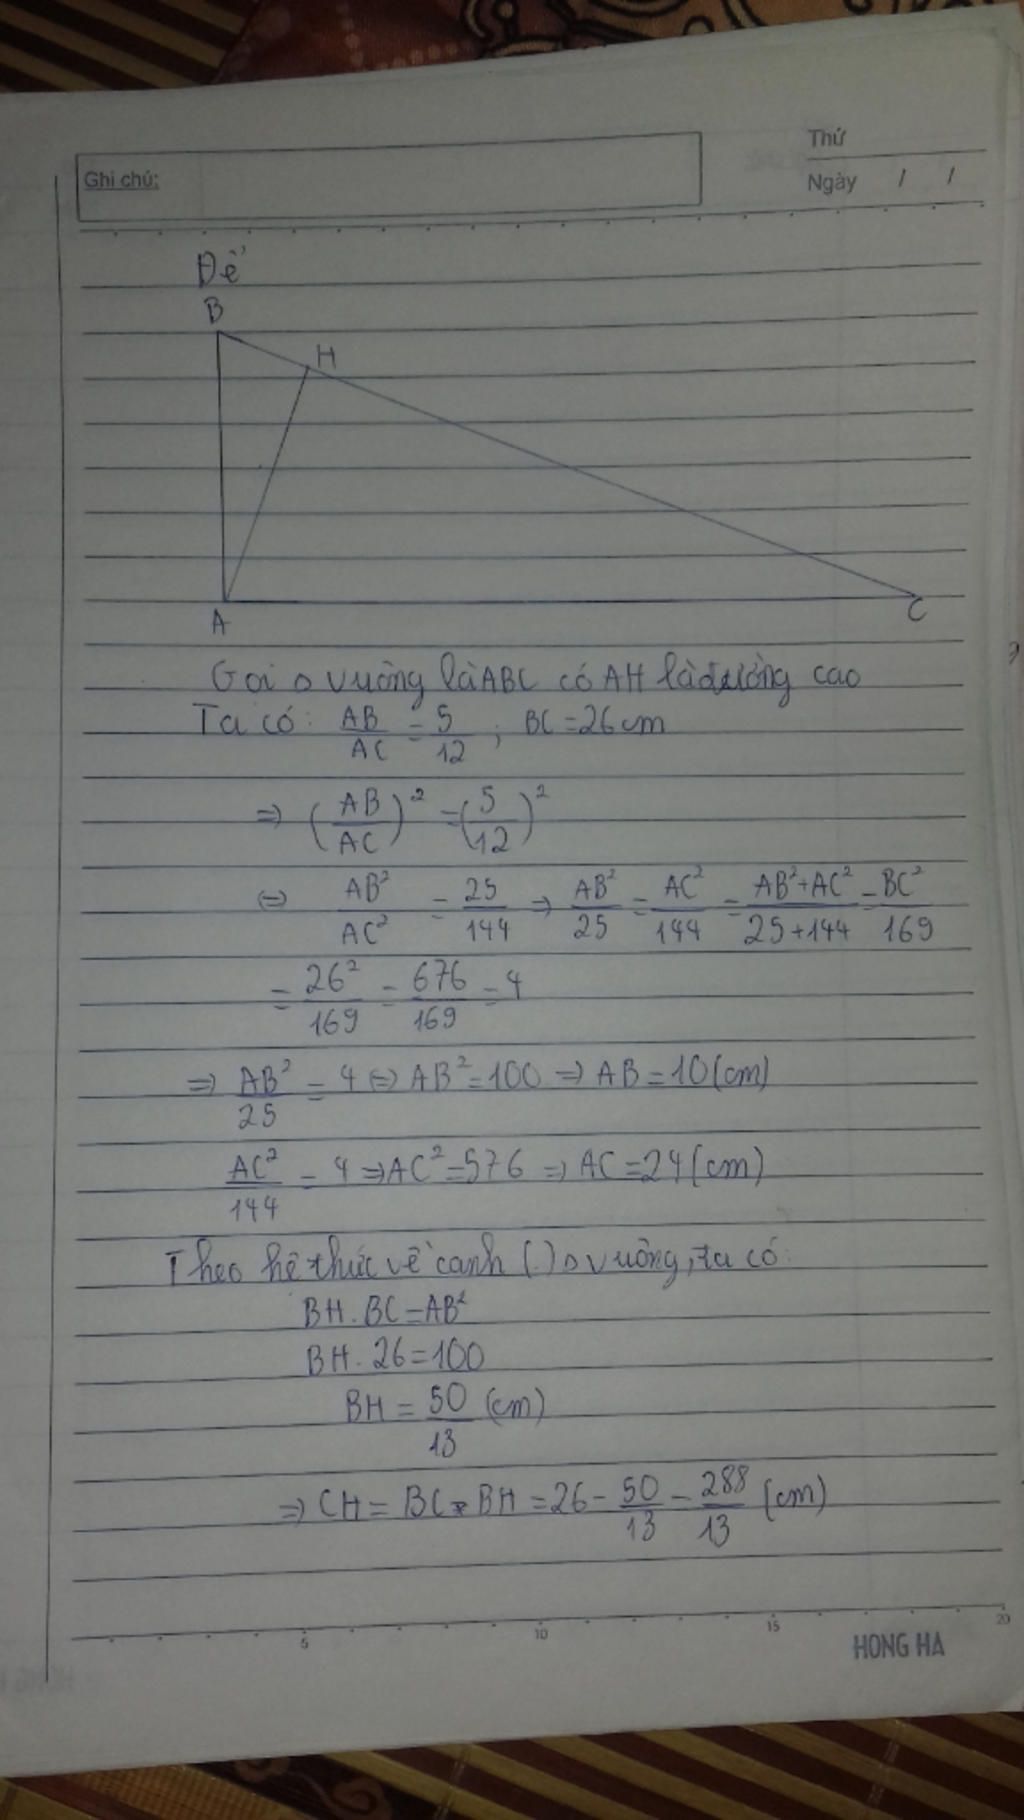 Ghi chú:
Thứ
Ngày / /
Đề
B
H
A
C
Gọi △ vuông là ABC có AH là đường cao
Ta có: AB/AC = 5/12 ; BC = 26 cm
⇒ (AB/AC)² = (5/12)²
⇔ AB²/AC² = 25/144 ⇒ AB²/25 = AC²/144 = AB²+AC²/25+144 = BC²/169
= 26²/169 = 676/169 = 4
⇒ AB²/25 = 4 ⇔ AB² = 100 ⇒ AB = 10 (cm)
AC²/144 = 4 ⇒ AC² = 576 ⇒ AC = 24 (cm)
Theo hệ thức về cạnh (.) △ vuông, ta có:
BH . BC = AB²
BH . 26 = 100
BH = 50/13 (cm)
⇒ CH = BC - BH = 26 - 50/13 = 288/13 (cm)
5 10 15 20
HONG HA